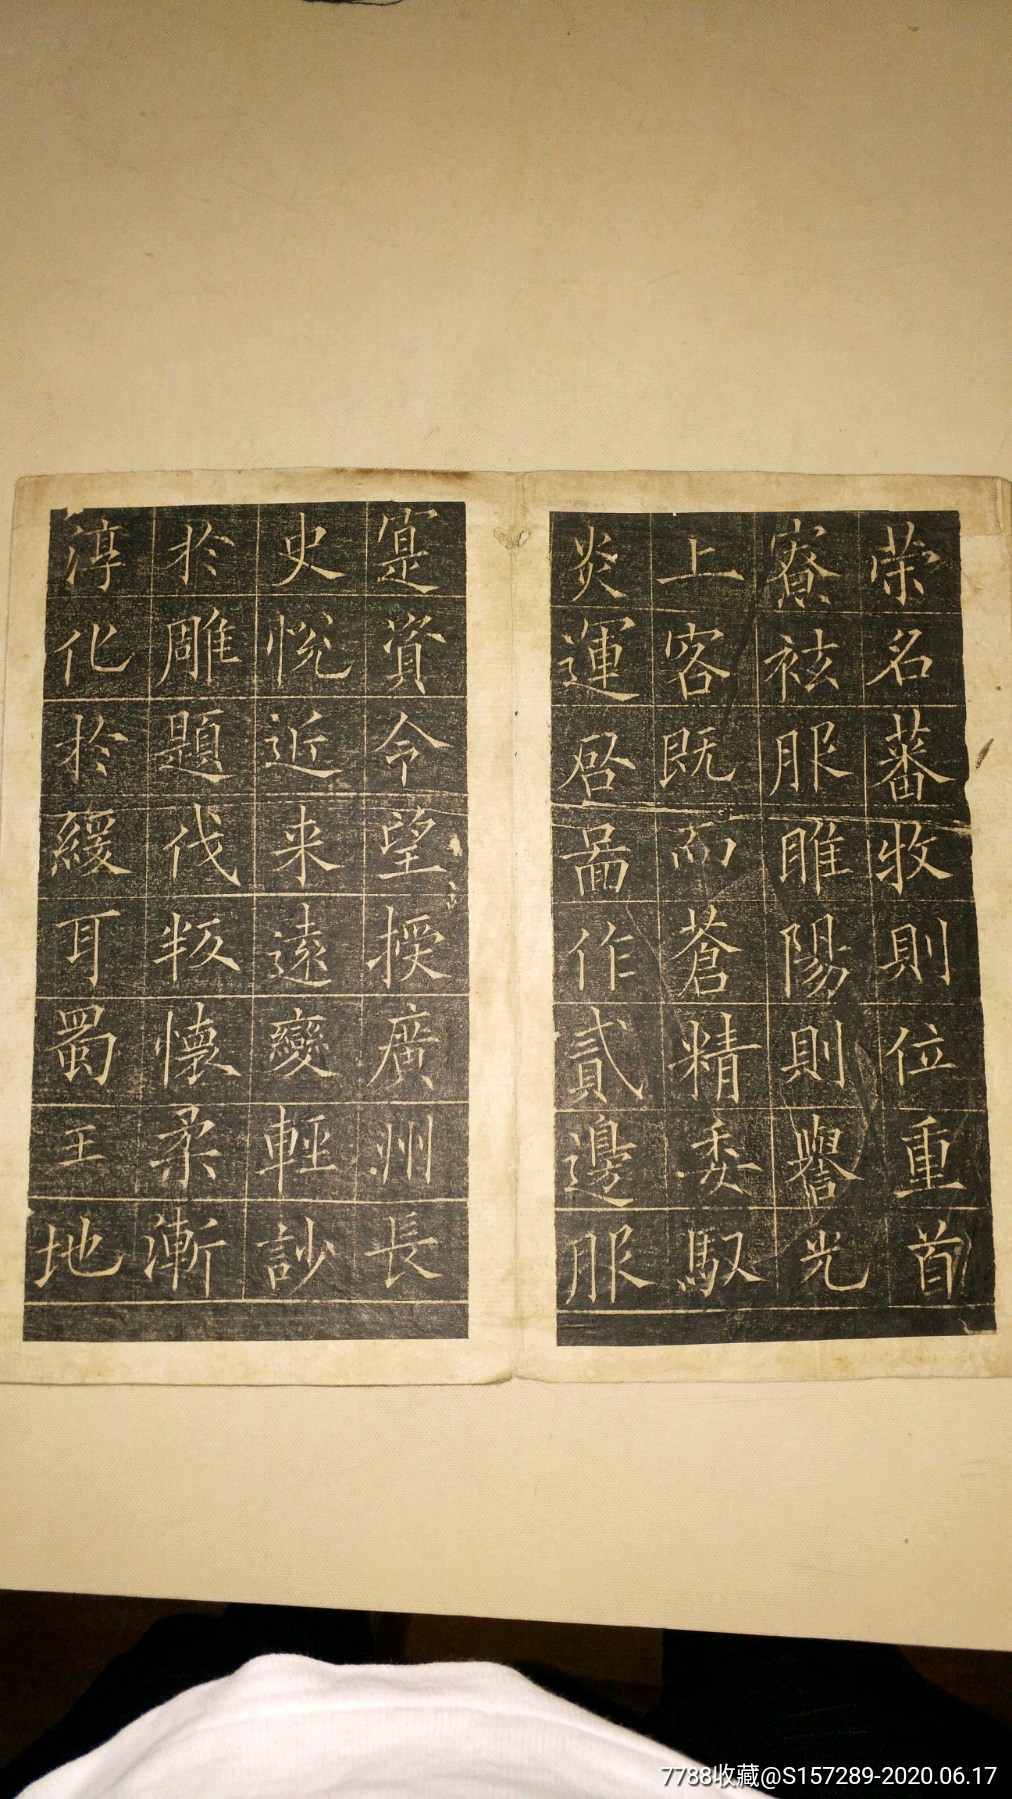 荣名蕃牧則位重首
寮袨服睢陽則譽光
上客既而蒼精委馭
炎運啓啚作貳邊服
寔資令望授廣州長
史悦近来遠變輕訬
於雕題伐叛懷柔漸
淳化於緩耳蜀王地
7788收藏@S157289-2020.06.17